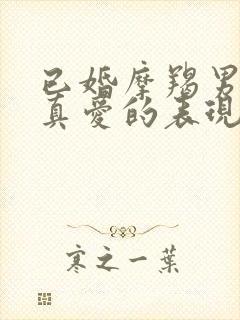 已婚摩羯男
真爱的表现
寒之一葉